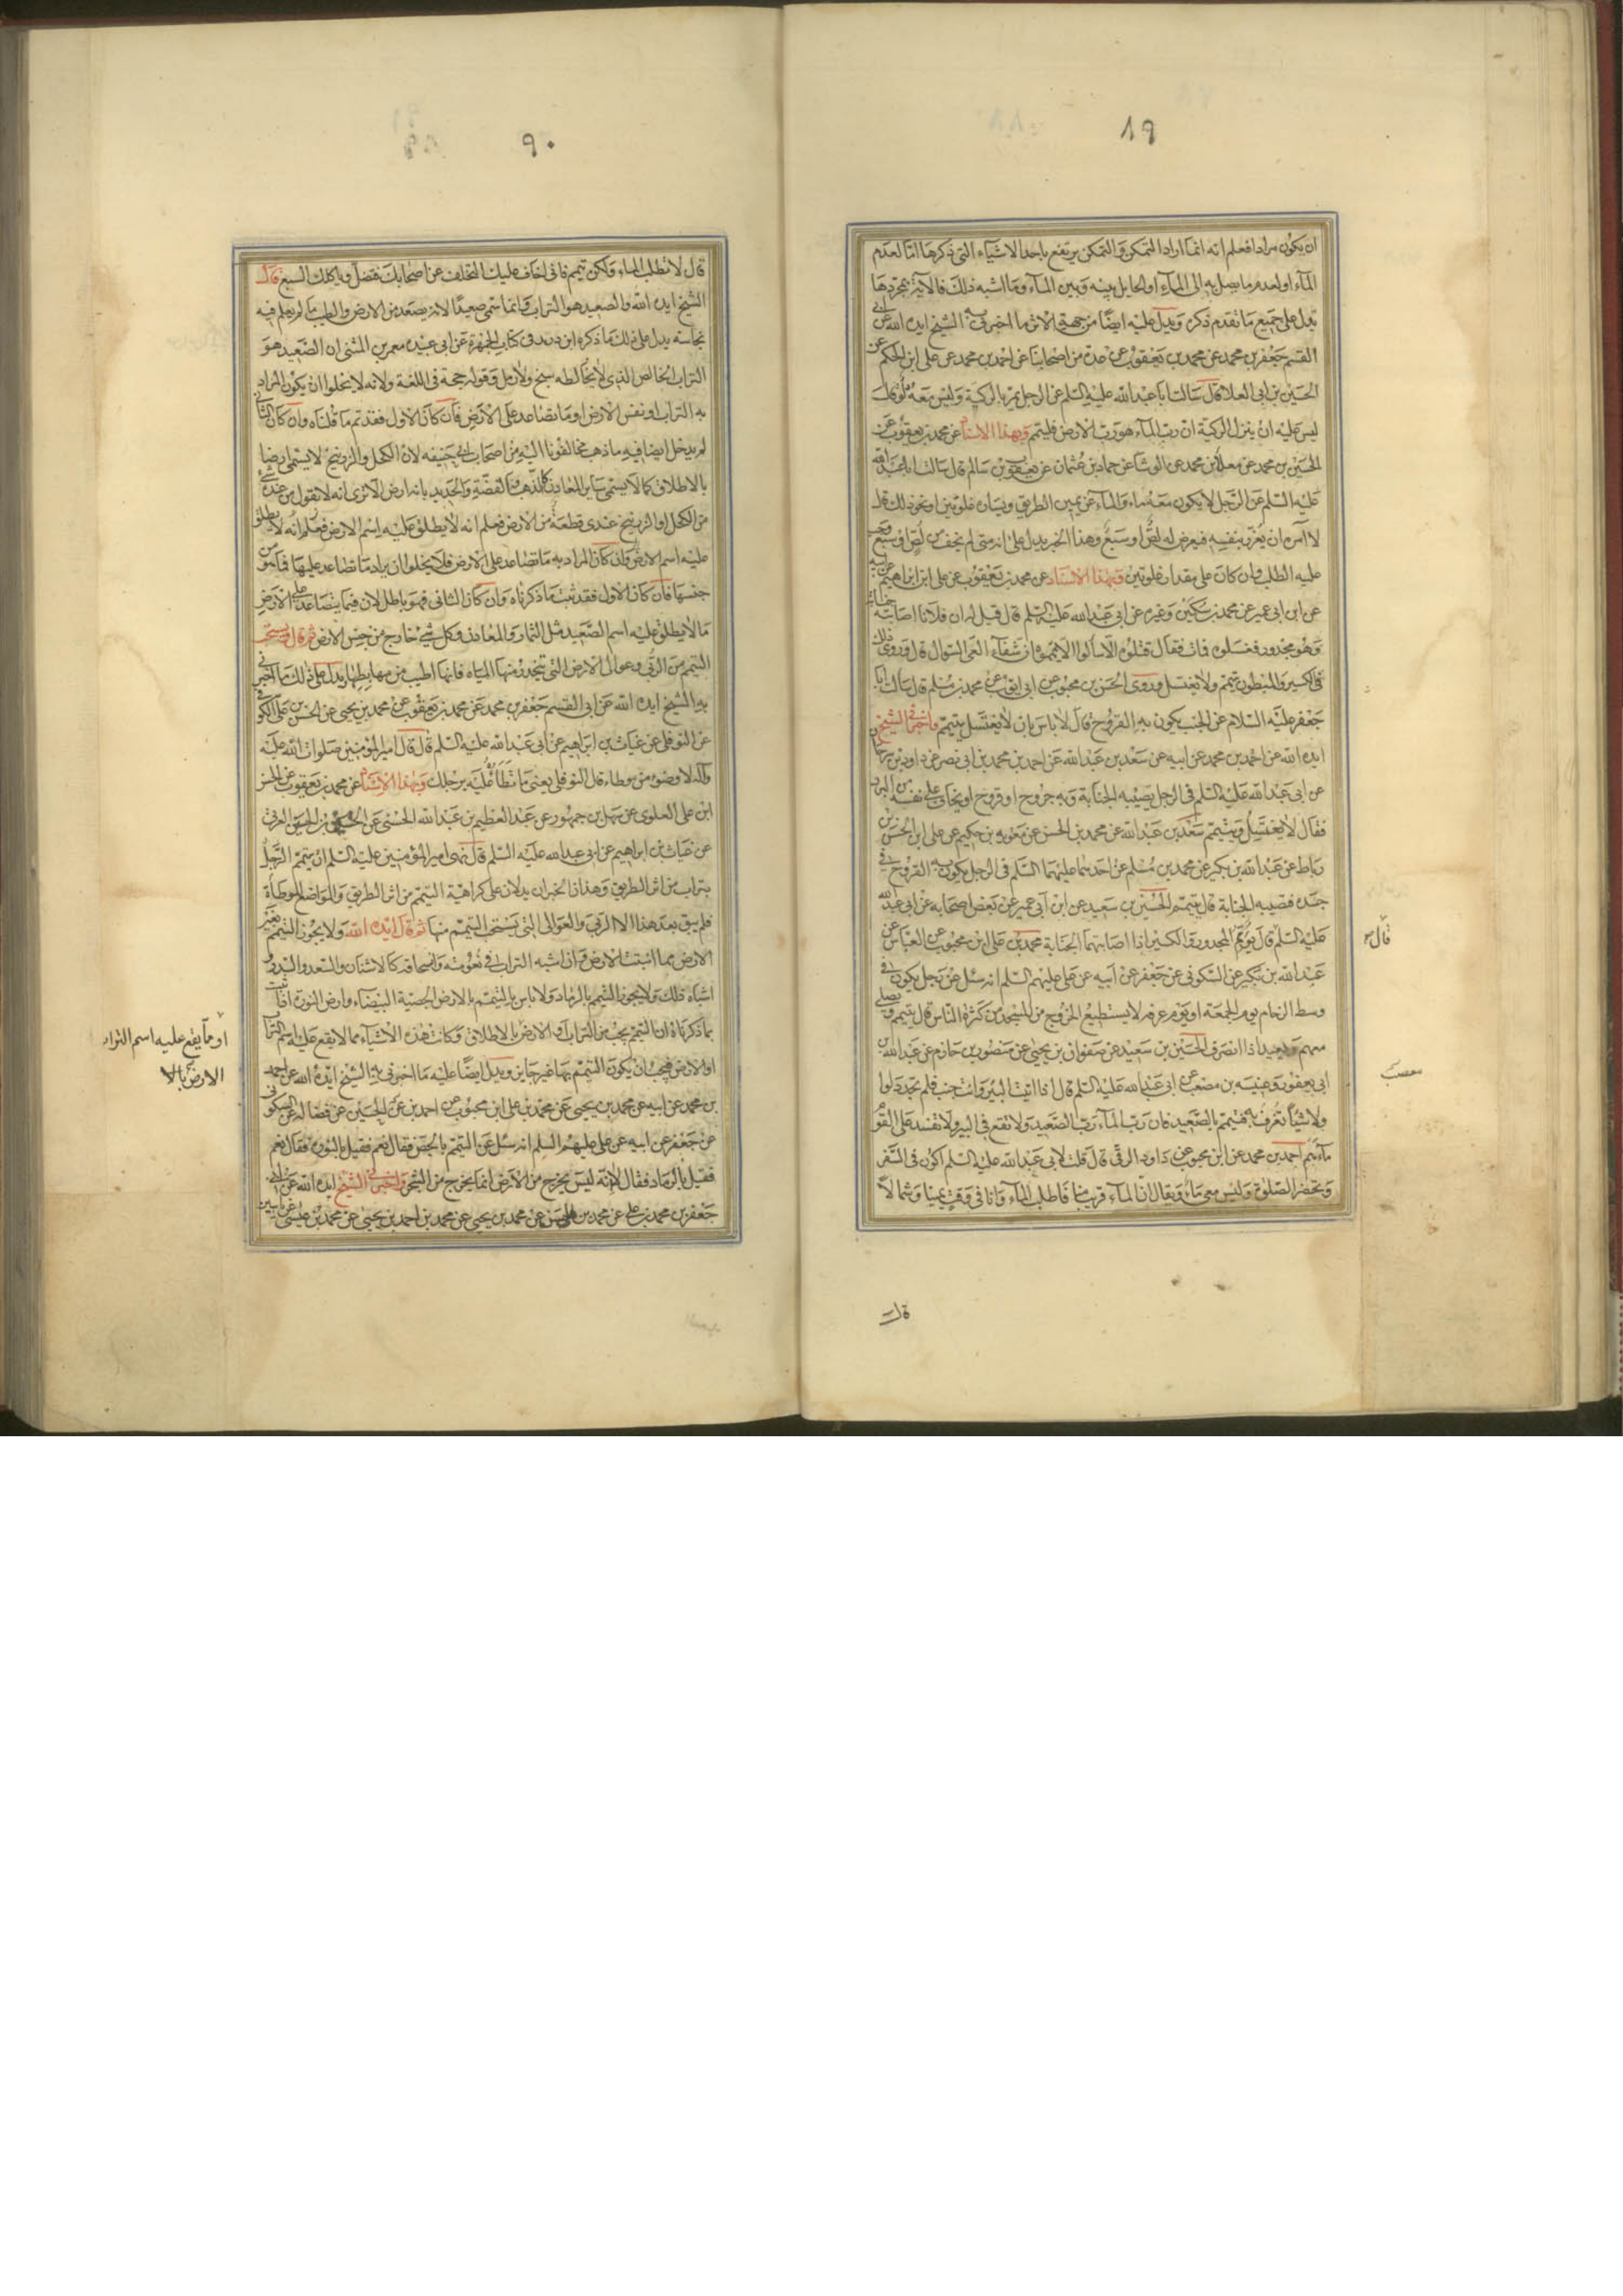 ٨٩
ان يكون مرادا فعلم انه انما اراد التمكن والتمكن يرتفع باحد الاشياء التى ذكرها امّا لعدم
المآء او لعدم ما يصل به الى المآء او لحايل بينه وبين المآء وما اشبه ذلك فالآية بمجردها
تدل على جميع ما تقدم ذكره ويدل عليه ايضًا من جهة الاثر ما اخبرنى به الشيخ ايده الله عن ابى
القسم جعفر بن محمد عن محمد بن يعقوب عن عدة من اصحابنا عن احمد بن محمد عن على ابن الحكم عن
الحسين بن ابى العلا قال سالت ابا عبد الله عليه السلم عن الرجل يمر بالركية وليس معه دلو قال
ليس عليه ان ينزل الركية ان ربّ المآء هو ربّ الارض فليتمم وبهذا الاسناد عن محمد بن يعقوب عن
الحسين بن محمد عن معلى بن محمد عن الوشا عن حماد بن عثمان عن يعقوب بن سالم قال سالت ابا عبد الله
عليه السلم عن الرّجل لا يكون معه ماء والمآء عن يمين الطريق ويساره غلوتين او نحو ذلك قال
لا آمره ان يغرّر بنفسه فيعرض له لصّ او سبع وهذا الخبر يدل على انه متى لم يخف من لصّ او سبع وجب
عليه الطلب وان كان على مقدار غلوتين وبهذا الاسناد عن محمد بن يعقوب عن على ابن ابراهيم عن ابيه
عن ابن ابى عمير عن محمد بن سكين وغيره عن ابى عبد الله عليه السلم قال قيل له ان فلانا اصابته جنابة
وهو مجدور فغسلوه فمات فقال قتلوه الّا سألوا الّا يمموه ان شفآء العىّ السؤال قال وروى ذلك
فى الكسير والمبطون يتيمم ولا يغتسل وروى الحسن بن محبوب عن ابى ايوب عن محمد بن مسلم قال سالت ابا
جعفر عليه السلام عن الجنب يكون به القروح قال لا باس بان لا يغتسل يتيمم واخبرنى الشيخ
ايده الله عن احمد بن محمد عن ابيه عن سعد بن عبد الله عن احمد بن محمد بن ابى نصر عن داود بن سرحان
عن ابى عبد الله عليه السلم فى الرجل يصيبه الجنابة وبه جروح او قروح او يخاف على نفسه من البرد
فقال لا يغتسل ويتيمم سعد بن عبد الله عن محمد بن الحسن عن معويه بن حكيم عن على ابن الحسن بن
رباط عن عبد الله بن بكير عن محمد بن مسلم عن احدهما عليهما السلم فى الرجل يكون به القروح فى
جسده فتصيبه الجنابة قال يتيمم الحسين بن سعيد عن ابن ابى عمير عن بعض اصحابه عن ابى عبد الله
عليه السلم قال يؤمم المجدور والكسير اذا اصابتهما الجنابة محمد بن على ابن محبوب عن العباس عن
عبد الله بن بكير عن السكونى عن جعفر عن ابيه عن على عليهم السلم انه سئل عن رجل يكون فى
وسط الزحام يوم الجمعة او يوم عرفه لا يستطيع الخروج من المسجد من كثرة النّاس قال يتيمم ويصلى
معهم ويعيد اذا انصرف الحسين بن سعيد عن صفوان بن يحيى عن منصور بن حازم عن عبد الله بن
ابى يعفور وعنبسه بن مصعب عن ابى عبد الله عليه السلم قال اذا اتيت البئر وانت جنب فلم تجد دلوا
ولا شيئًا تغرف به فتيمم بالصّعيد فان ربّ المآء ربّ الصّعيد ولا تقع فى البير ولا تفسد على القوم
ماءهم احمد بن محمد عن ابن محبوب عن داود الرقى قال قلت لابى عبد الله عليه السلم اكون فى السّفر
وتحضر الصّلوة وليس معى ماء ويقال انّ المآء قريب منا فاطلب المآء وانا فى وقت يمينا وشمالًا
قال
مصعب
قال
٩٠
قال لا تطلب المآء ولكن تيمم فانى اخاف عليك التخلف عن اصحابك فتضل وياكلك السبع قال
الشيخ ايده الله والصعيد هو التراب وانما سمّى صعيدًا لانه يصعد من الارض والطيب ما لم يعلم فيه
نجاسته يدل على ذلك ما ذكره ابن دريد فى كتاب الجمهرة عن ابى عبيده معمر بن المثنى ان الصّعيد هو
التراب الخالص الذى لا يخالطه سبخ ولا رمل وقوله حجة فى اللغة ولانه لا يخلوا ان يكون المراد
به التراب او نفس الارض او ما تصاعد على الارض فان كان الاول فقد تم ما قلناه وان كان الثانى
لم يدخل ايضا فيه ما ذهب مخالفونا اليه من اصحاب ابى حنيفه لان الكحل والزرنيخ لا يسمى ارضا
بالاطلاق كما لا يسمى ساير المعادن كالذهب والفضّة والحديد بانه ارض الا ترى انه لا يقول من عنده شئ
من الكحل او الزرنيخ عندى قطعة من الارض فعلم انه لا يطلق عليه اسم الارض فعلم انه لا يطلق
عليه اسم الارض وان كان المراد به ما تصاعد على الارض فلا يخلوا ان يراد ما تصاعد عليها مما هو من
جنسها فان كان الاول فقد ثبت ما ذكرناه وان كان الثانى فهو باطل لان فيما يتصاعد على الارض
ما لا يطلق عليه اسم الصّعيد مثل الثمار والمعادن وكل شئ خارج من جنس الارض ثم قال ويستحب
التيمم من الربى وعوالى الارض التى تنحدر منها المياه فانها اطيب من مهابطها يدل على ذلك ما اخبرنى
به الشيخ ايده الله عن ابى القسم جعفر بن محمد عن محمد بن يعقوب عن محمد بن يحيى عن الحسن بن على الكوفى
عن النوفلى عن غياث بن ابراهيم عن ابى عبد الله عليه السلم قال قال امير المؤمنين صلوات الله عليه
وآله لا وضوء من موطاء قال النوفلى يعنى ما تطأ عليه برجلك وبهذا الاسناد عن محمد بن يعقوب عن الحسن
ابن على العلوى عن سهل بن جمهور عن عبد العظيم بن عبد الله الحسنى عن الحسن بن الحسين العرنى
عن غياث بن ابراهيم عن ابى عبد الله عليه السلم قال نهى امير المؤمنين عليه السلم ان يتيمم الرّجل
بتراب من اثر الطريق وهذان الخبران يدلان على كراهية التيمم من اثر الطريق والمواضع الموطأة
فلم يبق بعد هذا الا الربى والعوالى التى يستحب التيمم منها ثم قال ايده الله ولا يجوز التيمم بغير
الارض مما انبتت الارض وان اشبه التراب فى نعومته وانسحاقه كالاشنان والسعد والسدر و
اشباه ذلك ولا يجوز التيمم بالرماد ولا باس بالتيمم بالارض الجصية البيضاء وارض النورة اذا ثبت
بما ذكرناه ان التيمم يجب من التراب او الارض بالاطلاق وكانت هذه الاشياء مما لا يقع عليه اسم التراب
او الارض فيجب ان يكون التيمم بها غير جايز ويدل ايضًا عليه ما اخبرنى به الشيخ ايده الله عن احمد
بن محمد عن ابيه عن محمد بن يحيى عن محمد بن على ابن محبوب عن احمد بن الحسين عن فضاله عن السكونى
عن جعفر عن ابيه عن على عليهم السلم انه سئل عن التيمم بالجص فقال نعم فقيل بالنورة فقال نعم
فقيل بالرماد فقال لا انه ليس يخرج من الارض انما يخرج من الشجر واخبرنى الشيخ ايده الله عن ابى
جعفر بن محمد بن على عن محمد بن الحسن عن محمد بن يحيى عن محمد بن احمد بن يحيى عن محمد بن عيسى عن ياسين
او ما يقع عليه اسم التراب
الارض بالا